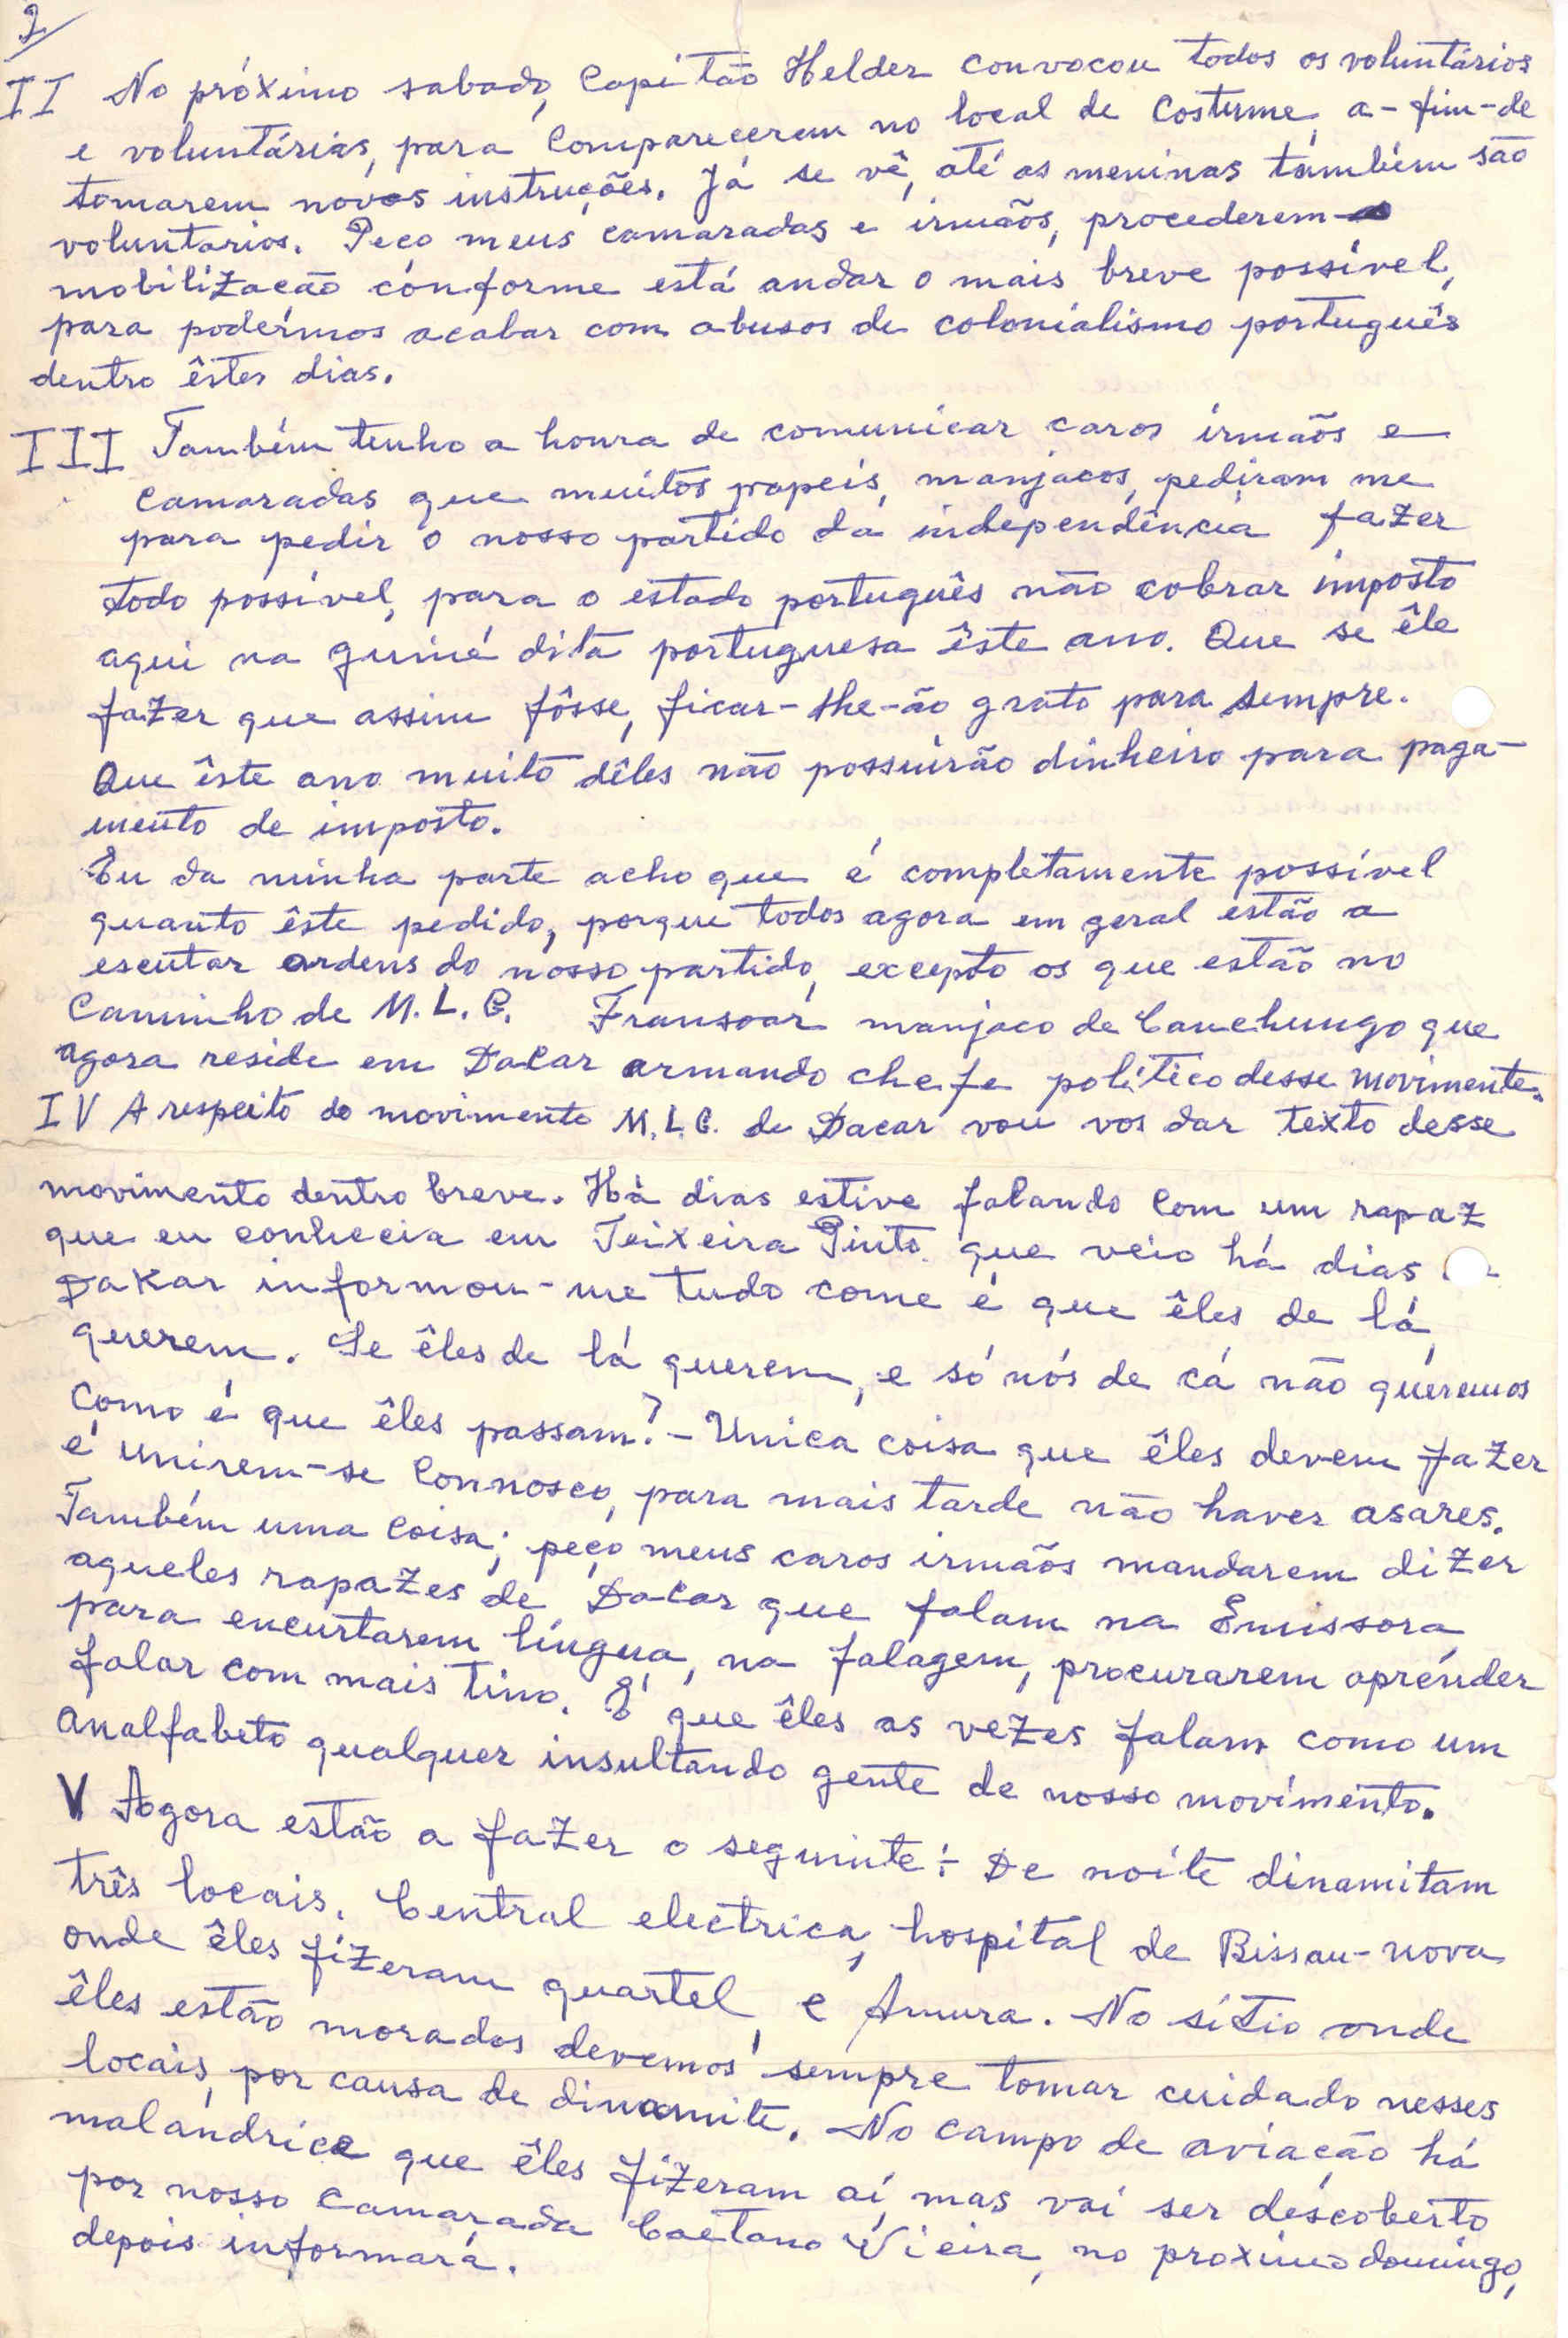 2
II No próximo sabado, Capitão Helder convocou todos os voluntários
e voluntárias, para comparecerem no local de costume, a-fim-de
tomarem novos instruções. Já se vê, até as meninas também são
voluntarios. Peço meus camaradas e irmãos, procederem
mobilização conforme está andar o mais breve possível,
para podermos acabar com abusos de colonialismo português
dentro êstes dias.
III Também tenho a honra de comunicar caros irmãos e
camaradas que muitos papeis, manjacos, pediram me
para pedir o nosso partido da independência fazer
todo possível, para o estado português não cobrar imposto
aqui na guiné dita portuguesa êste ano. Que se êle
fazer que assim fôsse, ficar-lhe-ão grato para sempre.
Que êste ano muito dêles não possuirão dinheiro para paga-
mento de imposto.
Eu da minha parte acho que é completamente possível
quanto êste pedido, porque todos agora em geral estão a
escutar ordens do nosso partido, excepto os que estão no
Caminho de M.L.G. Fransoar manjaco de Canchungo que
agora reside em Dacar armando chefe político desse movimento.
IV A respeito do movimento M.L.G. de Dacar vou vos dar texto desse
movimento dentro breve. Há dias estive falando com um rapaz
que eu conhecia em Teixeira Pinto que veio há dias
Dakar informou-me tudo come é que êles de lá
querem. Se êles de lá querem, e só nós de cá não queremos
como é que êles passam? - Unica coisa que êles devem fazer
é unirem-se connosco, para mais tarde não haver asares.
Também uma coisa; peço meus caros irmãos mandarem dizer
aqueles rapazes de Dacar que falam na Emissora
para encurtarem língua, na falagem, procurarem aprênder
falar com mais tino. É que êles as vezes falam como um
analfabeto qualquer insultando gente de nosso movimento.
V Agora estão a fazer o seguinte:- De noite dinamitam
três locais. Central electrica, hospital de Bissau-nova
onde êles fizeram quartel, e Amura. No sítio onde
êles estão morados devemos sempre tomar cuidado nesses
locais, por causa de dinamite. No campo de aviação há
malandrice que êles fizeram aí, mas vai ser descoberto
por nosso camarada Caetano Vieira, no proximo domingo,
depois informará.